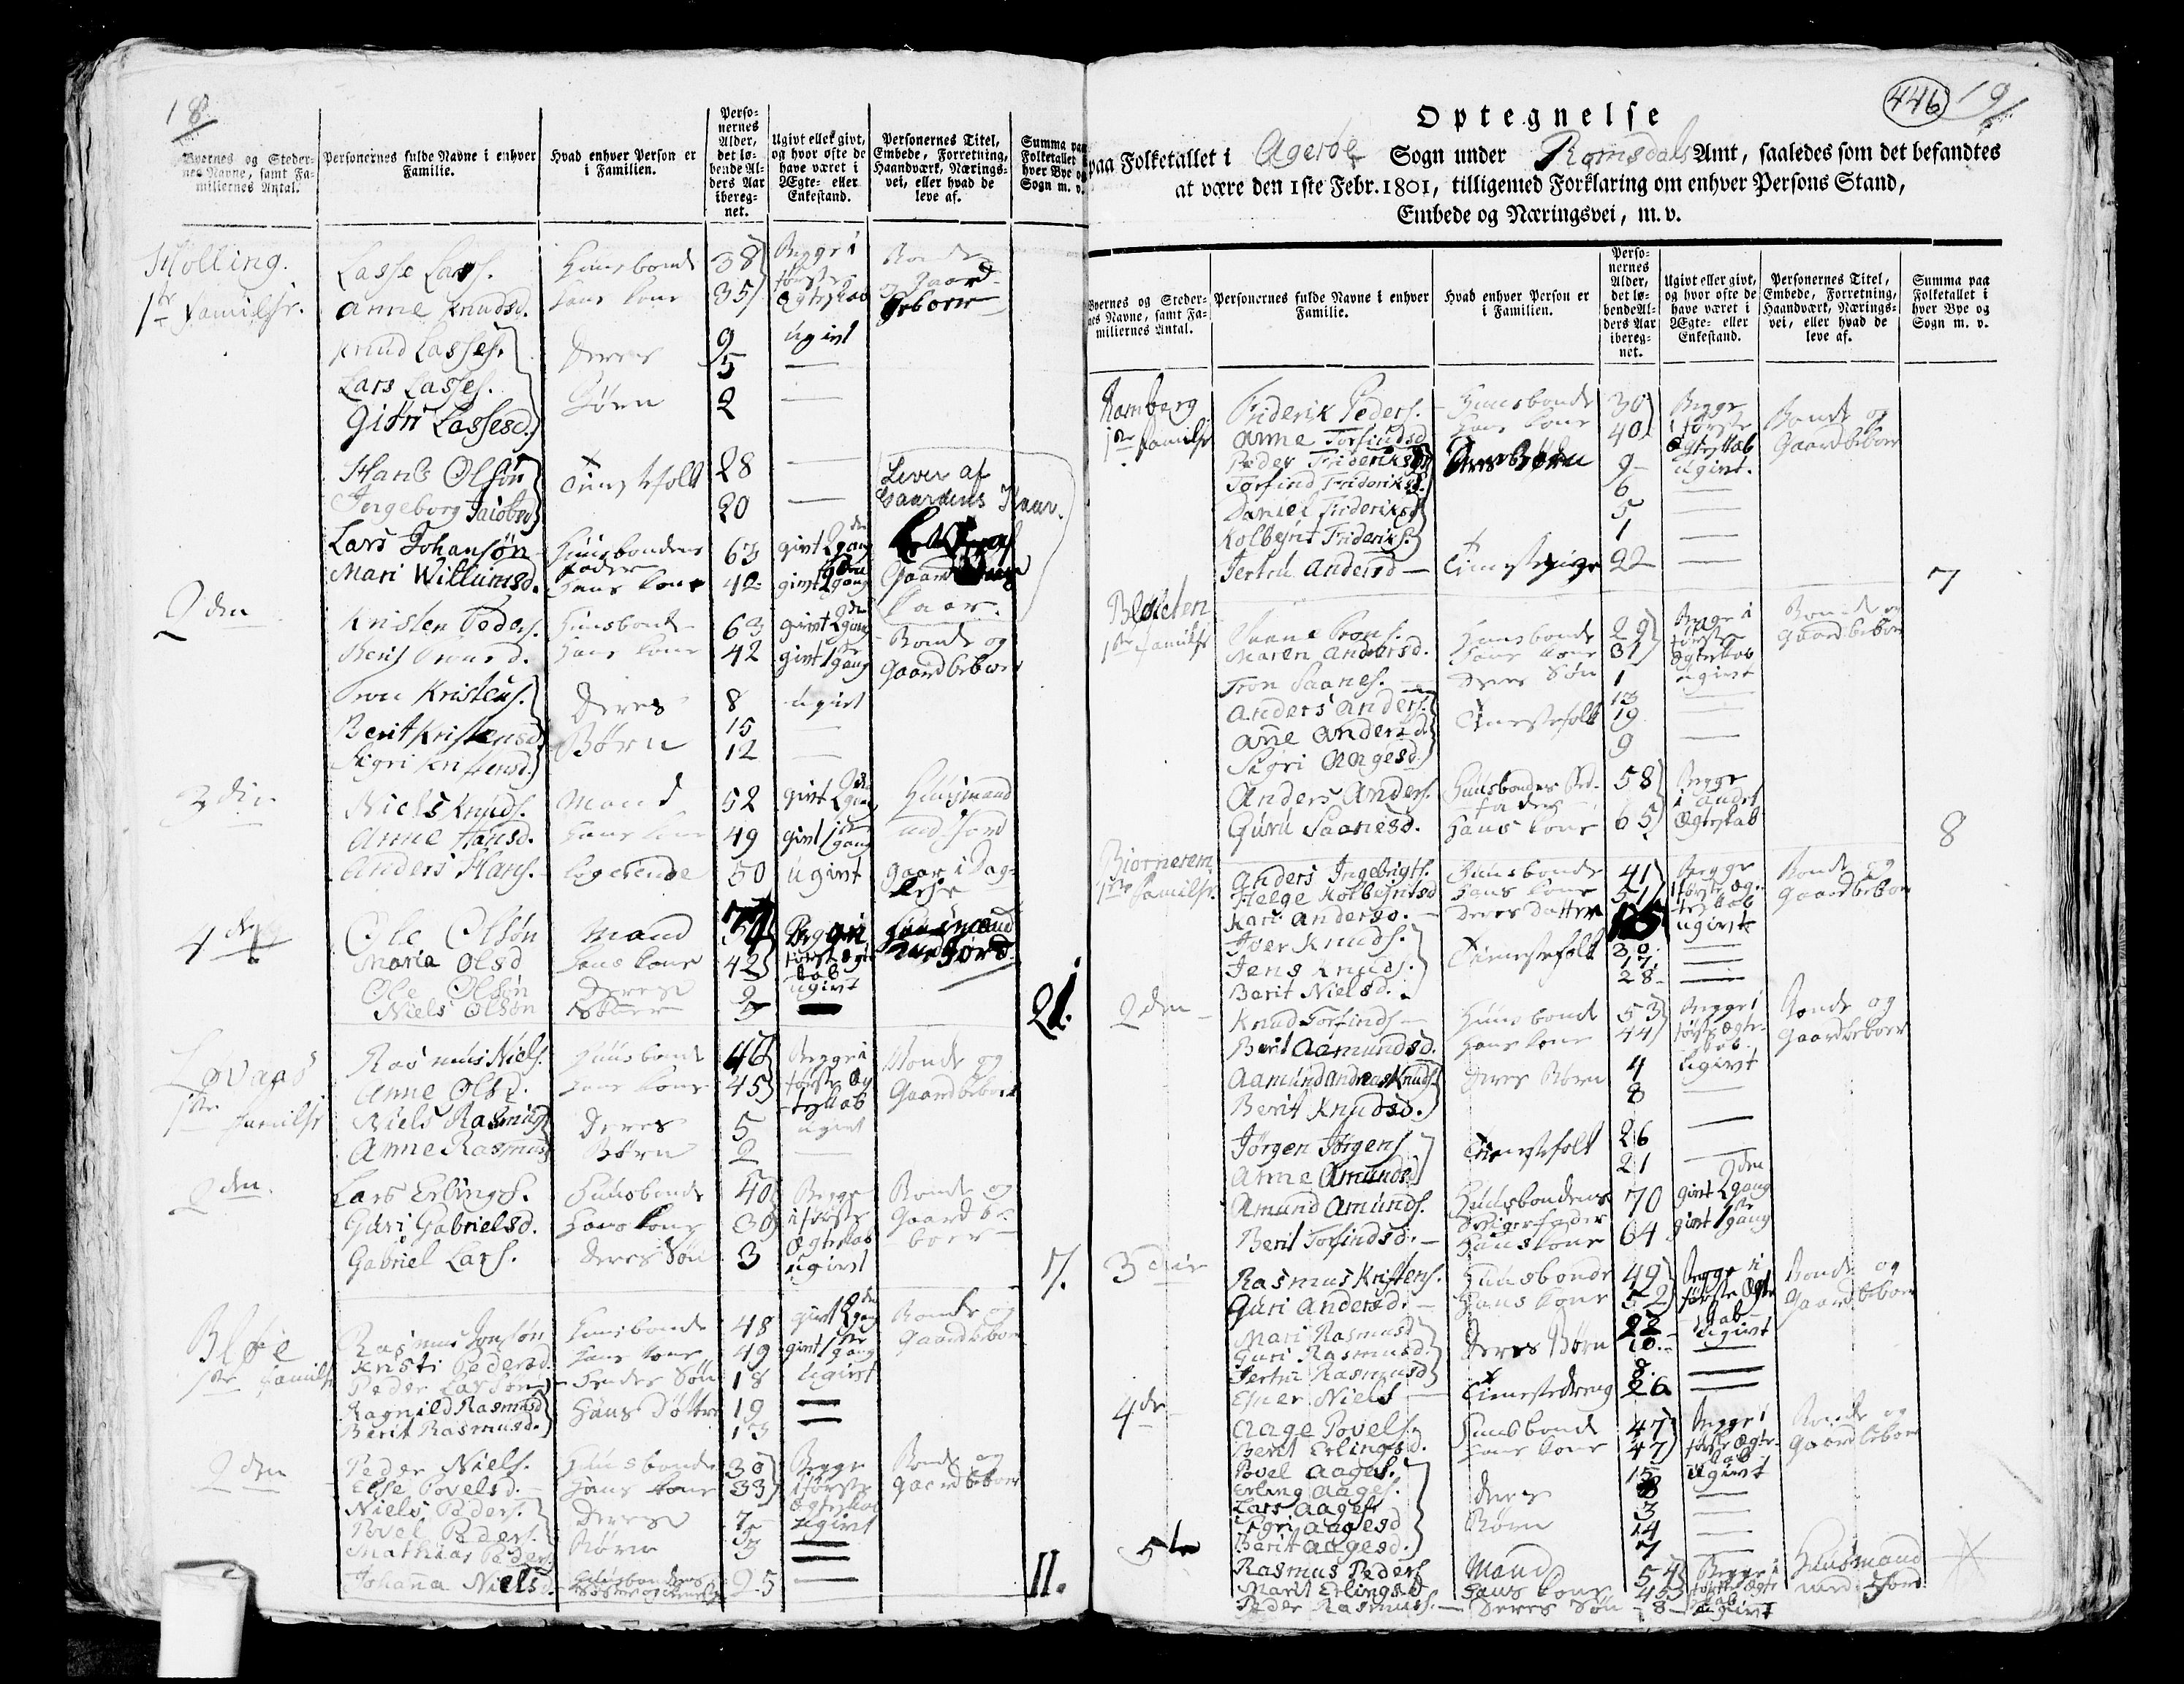 18
Byernes og Steder-
nes Navne, samt Fa-
miliernes Antal.
Personernes fulde Navne i enhver
Familie.
Hvad enhver Person er
i Familien.
Perso-
nernes
Alder,
det lø-
bende Al-
ders Aar
ibereg-
net.
Ugivt eller givt,
og hvor ofte de
have været i
Ægte- eller
Enkestand.
Personernes Titel,
Embede, Forretning,
Haandværk, Nærings-
vei, eller hvad de
leve af.
Summa paa
Folketallet
hver Bye og
Sogn m. v.
Hølling.
1te familie.
Lasse Lars. Huusbond 38 Begge i Bonde
Anne Knudsd. Hans kone 35 første Ægteskab og Gaard-beboer
Knud Lasses. Deres 9 ugivt
Lars Lasses. Børn 5 —
Giøri Lassesd. 2 —
Hans Olsøn Tienestefolk 28 —
Ingeborg Jacobsd. 20 —
Lever af Gaardens Kaar.
Lars Johansøn Huusbondens Fader 63 givt 2den gang
Mari Willumsd. Hans kone 42 givt gang Gaard Kaar.
2den
Kristen Peders. Huusbond 63 givt 2den gang Bonde og
Berit Tronsd. Hans kone 42 givt 1ste gang Gaardbeboer
Tron Kristens. Deres 8 ugivt
Berit Kristensd. Børn 15 —
Sigri Kristensd. 12 —
3die
Niels Knuds. Mand 52 givt 2den gang Huusmand
Anne Hansd. Hans kone 49 givt 1ste gang med Jord
Anders Hans. logerende 50 ugivt gaar i Dag-leje
4de
Ole Olsøn Mand Begge i Huusmand
Maria Olsd Hans kone 42 første Ægteskab med Jord
Ole Olsøn Deres 9 ugivt
Niels Olsøn Sønner —
21.
Løvaas
1ste familie
Rasmus Niels. Huusbond 46 Begge i Bonde og
Anne Olsd. Hans kone 45 første Ægteskab Gaardbeboer
Niels Rasmus Deres 5 ugivt
Anne Rasmusd Børn 2 —
2den.
Lars Erlings. Huusbonde 40 Begge Bonde og
Guri Gabrielsd. Hans kone 39 i første Ægteskab Gaardbe-boer
Gabriel Lars. deres Søn 3 ugivt
7.
Bløe
1ste familie
Rasmus Jonsøn Huusbonde 48 givt 2den gang Bonde og
Kristi Pedersd. Hans kone 49 givt 1ste gang Gaardbeboer
Peder Larsøn Søn 18 ugivt
Ragnild Rasmusd Hans Døttre 19 —
Berit Rasmusd. 13 —
2den
Peder Niels. Huusbonde 30 Begge Bonde og
Else Povelsd. Hans kone 33 i første Ægteskab Gaardbeboer
Niels Peders. Deres 7 ugivt
Povel Peders. Børn 5 —
Mathias Peders. —
Johanna Nielsd. Huusbondens Søster 25 —
11.
446 19
Optegnelse
paa Folketallet i Agerøe Sogn under Romsdals Amt, saaledes som det befandtes
at være den 1ste Febr. 1801, tilligemed Forklaring om enhver Persons Stand,
Embede og Næringsvei, m. v.
Byernes og Steder-
nes Navne, samt Fa-
miliernes Antal.
Personernes fulde Navne i enhver
Familie.
Hvad enhver Person er
i Familien.
Perso-
nernes
Alder,
det lø-
bende Al-
ders Aar
ibereg-
net.
Ugivt eller givt,
og hvor ofte de
have været i
Ægte- eller
Enkestand.
Personernes Titel,
Embede, Forretning,
Haandværk, Nærings-
vei, eller hvad de
leve af.
Summa paa
Folketallet i
hver Bye og
Sogn m. v.
Romberg
1ste familie
Friderik Peders. Huusbonde 30 Begge Bonde og
Anne Torfindsd Hans kone 40 i første Ægteskab Gaardbeboer
Peder Frideriks Deres Børn 9 ugivt.
Torfind Frideriks. 6 —
Daniel Frideriks 5 —
Kolbejns Frideriks. 1 —
Jertru Andersd Tienestepige 22 —
7
1ste familie
Saane Trons. Huusbonde 29 Begge i Bonde og
Maren Andersd. Hans kone 31 første Ægteskab Gaardbeboer
Tron Saanes. Deres Søn 1 ugivt
Anders Anders. Tienestefolk 13 —
Ane Andersd. 19
Sigri Aagesd. 9 —
Anders Anders. Huusbondes Sted-fader 58 Begge
Guru Saanesd. Hans kone 65 i andet Ægteskab
8
Biørnerem
1ste familie.
Anders Ingebrigts. Huusbonde 41 Begge Bonde og
Helge Kolbejnsd Hans kone 51 i første Ægteskab Gaardbeboer
Kari Andersd. deres datter 15 ugivt
Iver Knuds. Tienestefolk 30 —
Jens Knuds. 17 —
Berit Nielsd. 28 —
2den
Knud Torfinds Huusbond 53 Begge i Bonde og
Berit Aamundsd. Hans kone 44 første Ægteskab Gaardbeboer
Aamund Andreas Knuds. deres Børn 4 ugivt
Berit Knudsd. 8 —
Jørgen Jørgens Tienestefolk 26
Anne Amundsd 21 —
Amund Amunds. Huusbondens Svigerfader 70 givt 2den gang
Berit Torfindsd. Hans kone 64 givt 1ste gang
3die
Rasmus Kristens. Huusbonde 49 Begge i Bonde og
Guri Andersd. Hans kone 52 første Ægteskab Gaardbeboer
Mari Rasmusd deres Børn 22 ugivt
Guri Rasmusd. 10 —
Jertru Rasmusd 8 —
Ener Niels Tienestedreng 26 —
4de
Aage Povels. Huusbond 47 Begge i Bonde og
Berit Erlingsd. Hans kone 47 første Ægteskab Gaardbeboer
Povel Aages. deres 15 ugivt
Erling Aages. Børn 8 —
Lars Aages 3 —
Sigri Aagesd 14 —
Barit Aagesd. 7 —
5te
Rasmus Peders Mand 54 Begge i Huusmand
Marit Erlingsd Hans kone 45 første Ægteskab med Jord
Peder Rasmuss. Deres Søn 8 ugivt